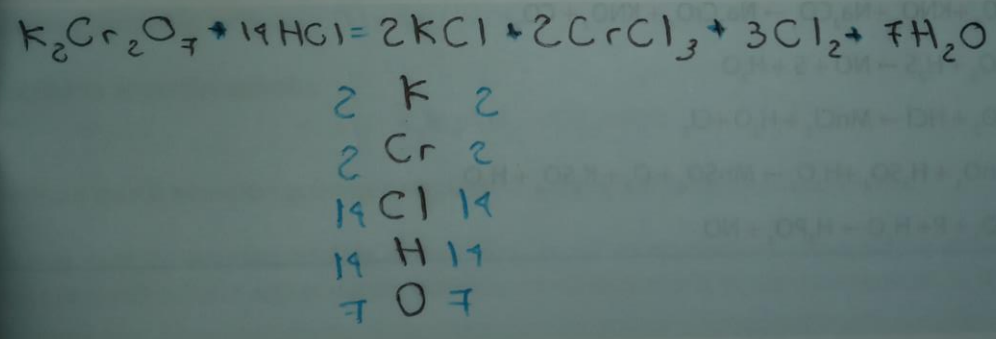 K₂Cr₂O₇ + 14HCl = 2KCl + 2CrCl₃ + 3Cl₂ + 7H₂O
2 K 2
2 Cr 2
14 Cl 14
14 H 14
7 O 7